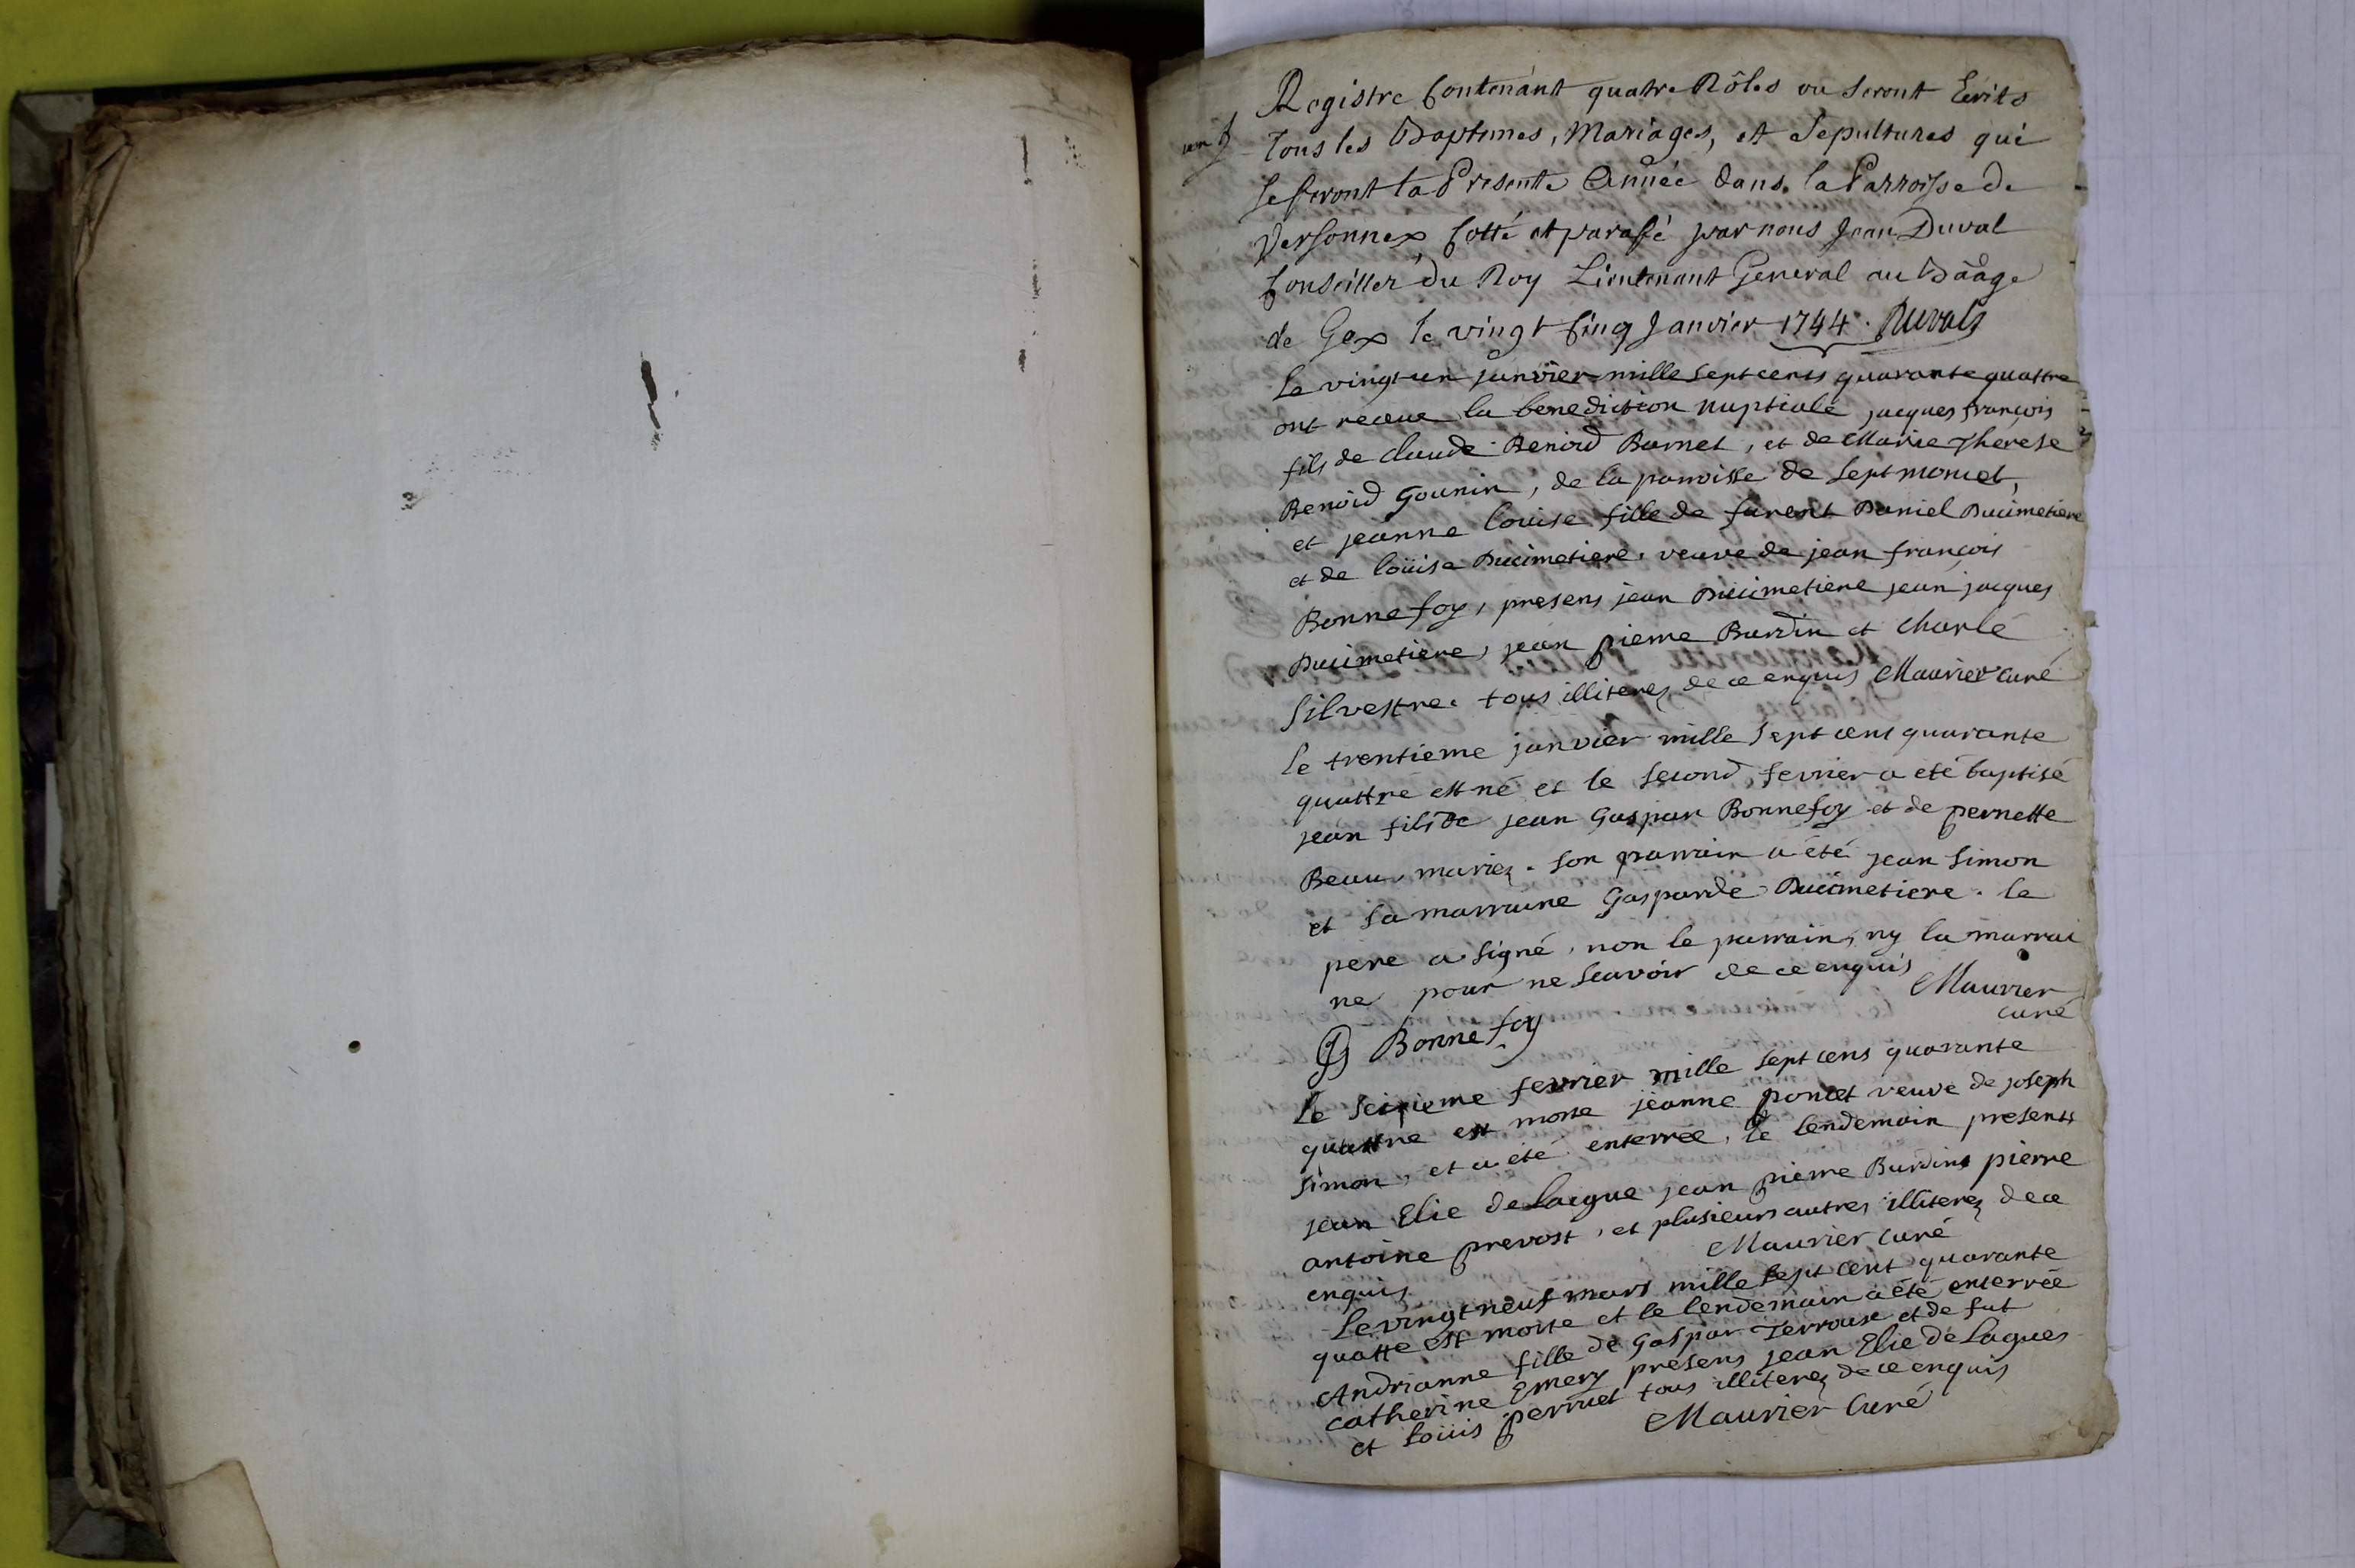 Registre Contenant quatre Rôles ou seront Ecrits
un
Tous les Baptemes, Mariages, et Sepultures qui
se feront la Presente Année dans la Parroisse de
Versonnex Cotté et parafé par nous Jean Duval
Conseiller du Roy Lieutenant General au Baâge
de Gex le vingt Cinq Janvier 1744. Duval
Le vingt un janvier mille sept cents quarante quattre
ont receue la benediction nuptiale jacques françois
fils de claude Benoid Barnet, et de Marie Therese
Benoid Gounin, de la parroisse de sept moncel,
et jeanne louise fille de furent Daniel Ducimetiere
et de loüise Ducimetiere. veuve de jean françois
Bonnefoy, presens jean Ducimetiere jean jacques
Ducimetiere, jean pierre Burdin et charle
Silvestre. tous illiterez de ce enquis Maurier curé
le trentieme janvier mille sept cent quarante
quattre est né et le second fevrier a eté baptisé
jean fils de jean Gaspar Bonnefoy et de pernette
Beau mariez. son parrain a été jean simon
et sa marraine Gasparde Ducimetiere. le
pere a signé, non le parrain, ny la marrai
ne pour ne scavoir de ce enquis Maurier
curé
Bonnefoy
le seizieme fevrier mille sept cens quarante
quattre est morte jeanne poncet veuve de joseph
simon, et a été enterrée, le lendemain presents
jean Elie delaigue jean pierre Burdin pierre
antoine prevost, et plusieurs autres illiterez de ce
enquis Maurier curé
Le vingt neuf mars mille sept cent quarante
quatte est morte et le lendemain a été enterrée
Andrianne fille de Gaspar Terroux et de fut
catherine Emery presens jean Elie de Lagues
et loüis perruet tous illiterez de ce enquis
Maurier Curé